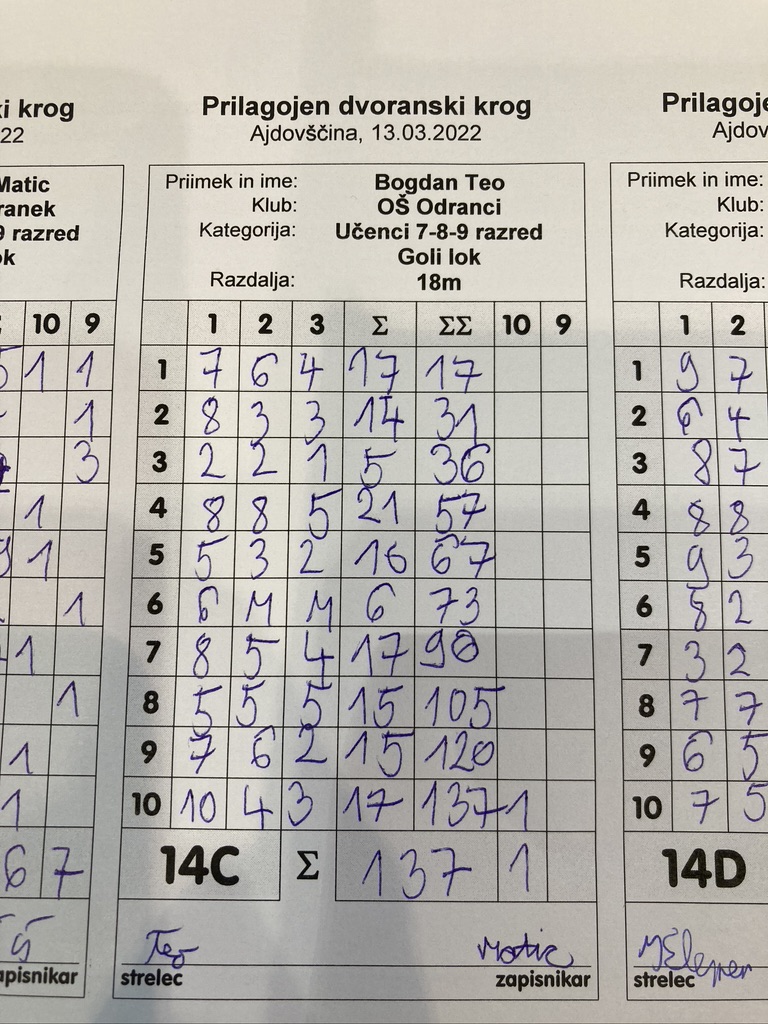 i krog
22
Matic
ranek
9 razred
ok
10 9
1 1
1
3
1
1
1
1
1
1
1
6 7
apisnikar
Prilagojen dvoranski krog
Ajdovščina, 13.03.2022
Priimek in ime: Bogdan Teo
Klub: OŠ Odranci
Kategorija: Učenci 7-8-9 razred
Goli lok
Razdalja: 18m
1 2 3 Σ ΣΣ 10 9
1 7 6 4 17 17
2 8 3 3 14 31
3 2 2 1 5 36
4 8 8 5 21 57
5 5 3 2 16 67
6 6 M M 6 73
7 8 5 4 17 90
8 5 5 5 15 105
9 7 6 2 15 120
10 10 4 3 17 137 1
14C Σ 137 1
Teo Matic
strelec zapisnikar
Prilagoje
Ajdov
Priimek in ime:
Klub:
Kategorija:
Razdalja:
1 2
1 9 7
2 6 4
3 8 7
4 8 8
5 9 3
6 8 2
7 3 2
8 7 7
9 6 5
10 7 5
14D
strelec